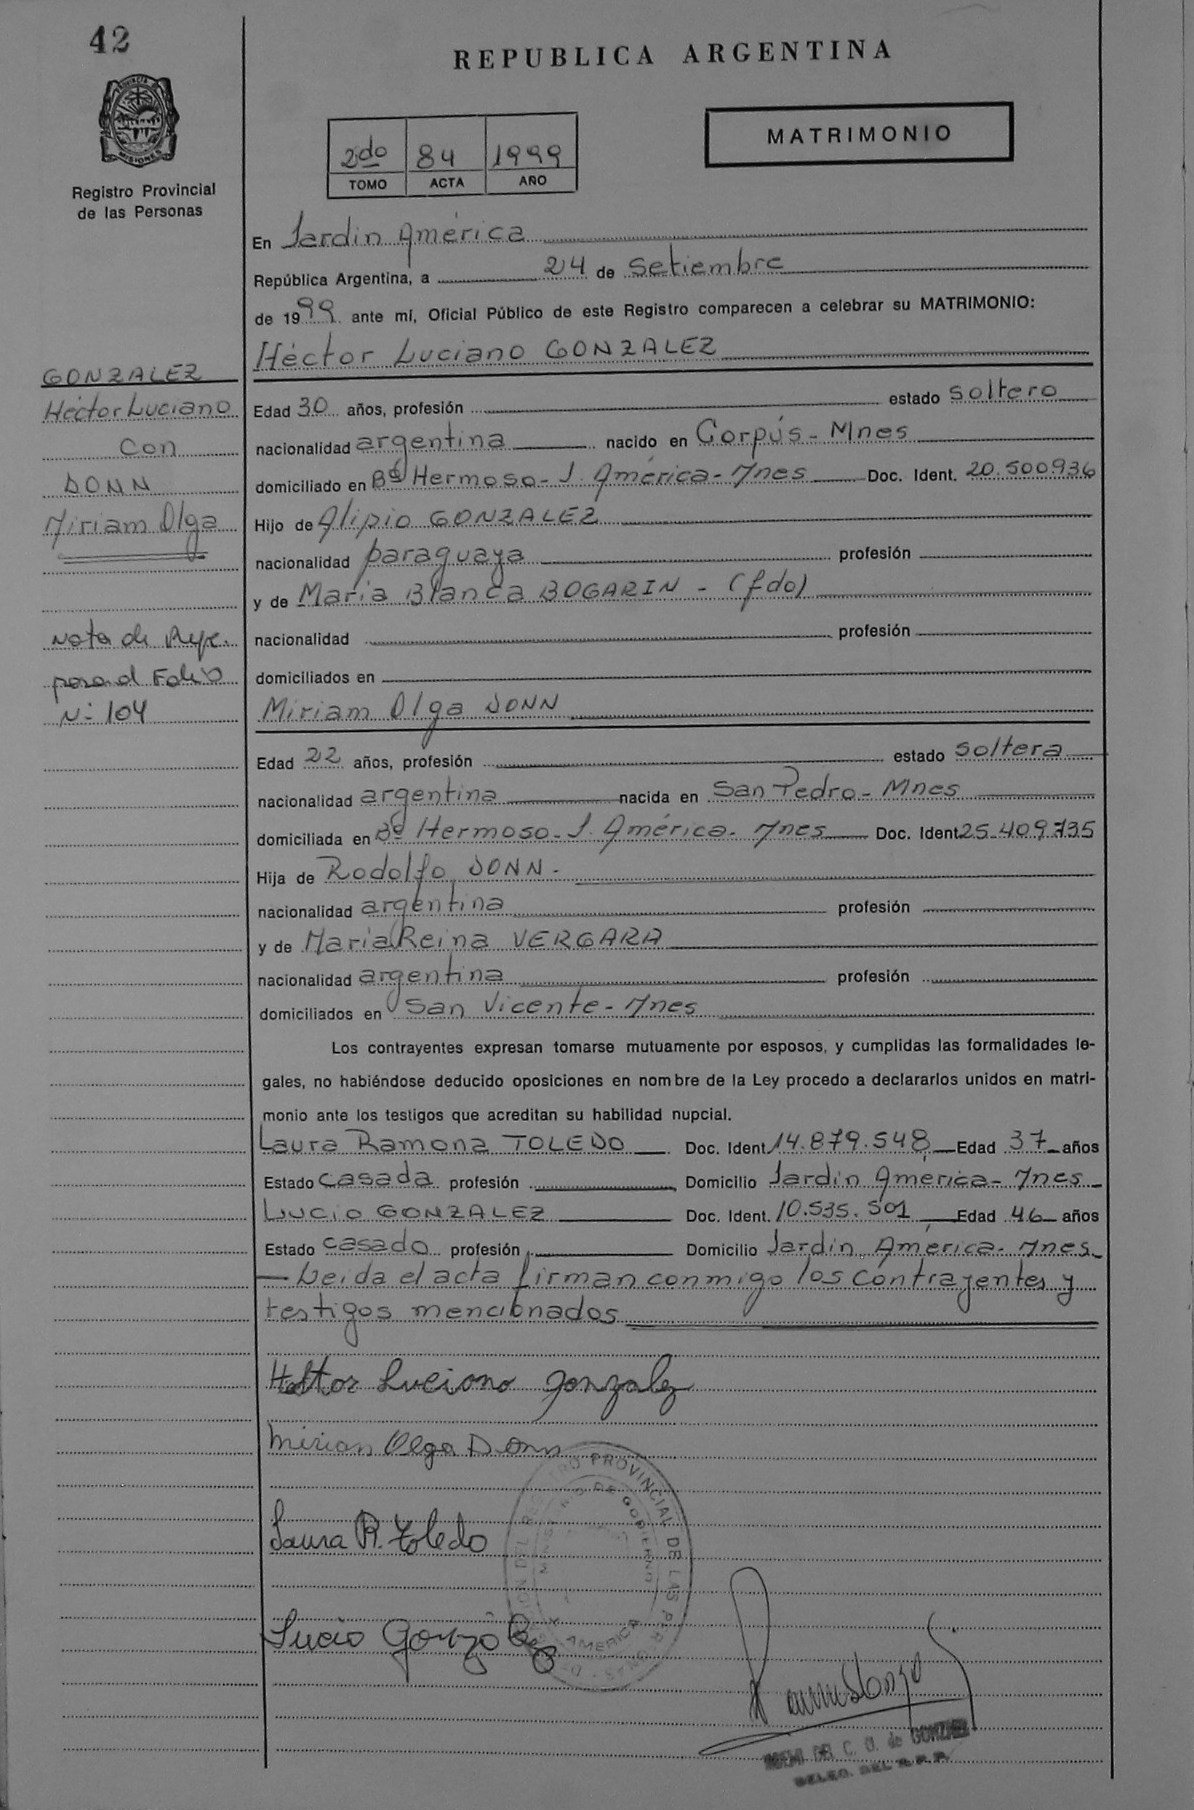 42
REPUBLICA ARGENTINA
MATRIMONIO
2do 84 1999
TOMO ACTA AÑO
PROVINCIA DE MISIONES
Registro Provincial
de las Personas
En Jardin América
República Argentina, a 24 de setiembre
de 1999 ante mí, Oficial Público de este Registro comparecen a celebrar su MATRIMONIO:
Héctor Luciano GONZALEZ
GONZALEZ
Héctor Luciano
Con
DONN
Miriam Olga
Nota de
para al Folio
N: 104
Edad 30 años, profesión estado soltero
nacionalidad argentina nacido en Corpús - Mnes
domiciliado en Bº Hermoso - J. América - Mnes Doc. Ident. 20.500936
Hijo de Alipio GONZALEZ
nacionalidad paraguaya profesión
y de Maria Blanca BOGARIN - (fdo)
nacionalidad profesión
domiciliados en
Miriam Olga DONN
Edad 22 años, profesión estado soltera
nacionalidad argentina nacida en San Pedro - Mnes
domiciliada en Bº Hermoso - J. América - Mnes Doc. Ident 25.409735
Hija de Rodolfo DONN -
nacionalidad argentina profesión
y de Maria Reina VERGARA
nacionalidad argentina profesión
domiciliados en San Vicente - Mnes
Los contrayentes expresan tomarse mutuamente por esposos, y cumplidas las formalidades le-
gales, no habiéndose deducido oposiciones en nombre de la Ley procedo a declararlos unidos en matri-
monio ante los testigos que acreditan su habilidad nupcial.
Laura Ramona TOLEDO Doc. Ident. 14.879.548 Edad 37 años
Estado casada profesión Domicilio Jardin América - Mnes
Lucio GONZALEZ Doc. Ident. 10.535.501 Edad 46 años
Estado casado profesión Domicilio Jardin América - Mnes
— Leida el acta firman conmigo los contrayentes y
testigos mencionados
Hector Luciano Gonzalez
Mirian Olga Donn
Laura R. Toledo
Lucio Gonzalez
REGISTRO PROVINCIAL DE LAS PERSONAS
MINISTERIO DE GOBIERNO
AMERICA
DEL C. O. de GONZALEZ
DELEG. DEL R. P. P.